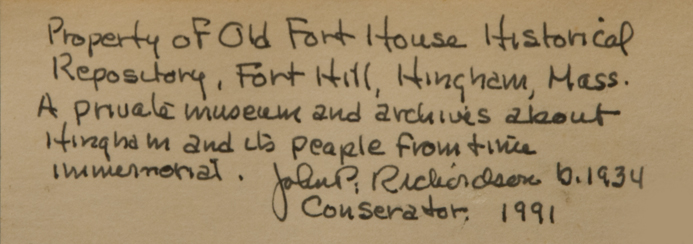 Property of Old Fort House Historical
Repository, Fort Hill, Hingham, Mass.
A private museum and archives about
Hingham and its people from time
immemorial. John P. Richardson b.1934
Conserator. 1991